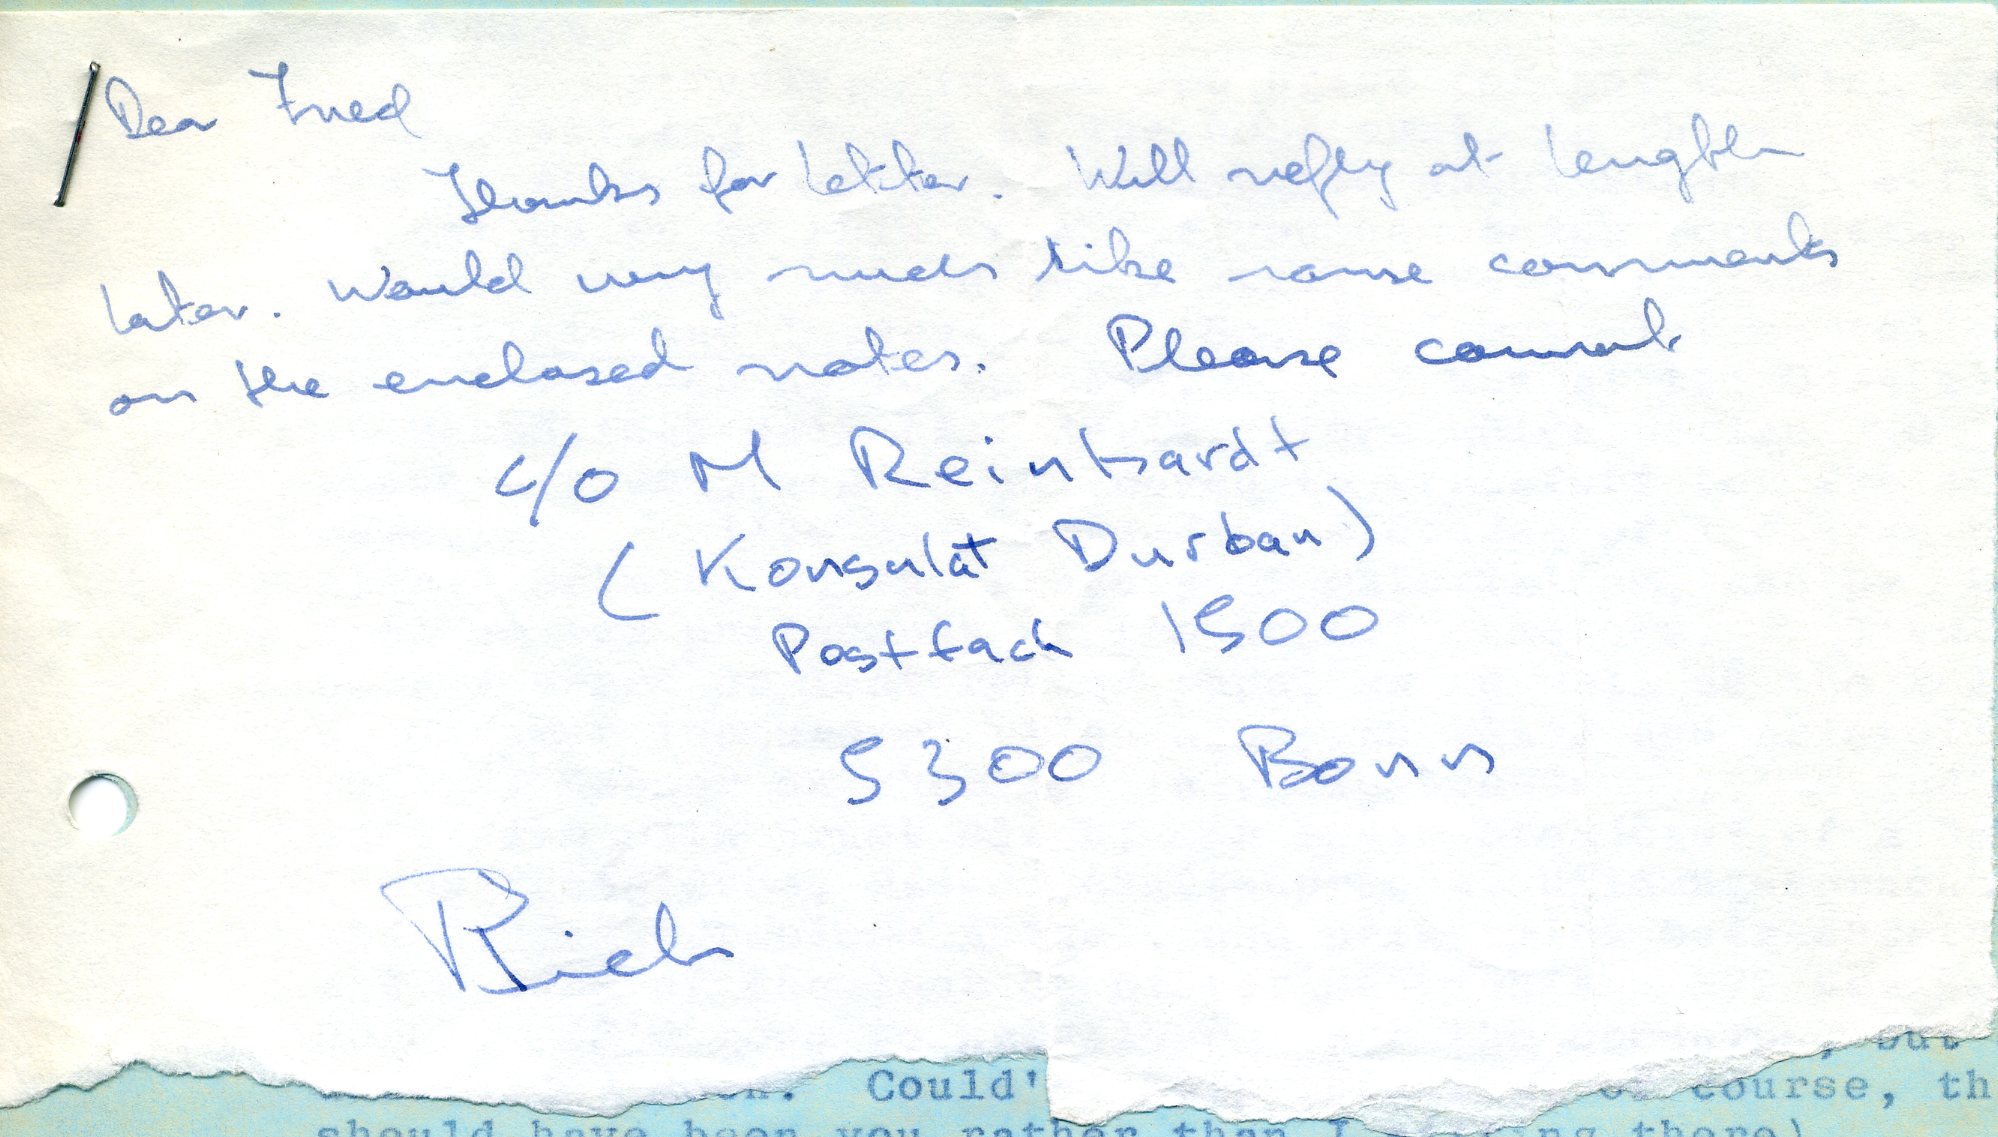 Dear Fred
Thanks for letter. Will reply at length
later. Would very much like some comments
on the enclosed notes. Please
c/o M Reinhardt
(Konsulat Durban)
Postfach 1500
5300 Bonn
Rick
, but
Could' course, th
should have been you rather than I there)